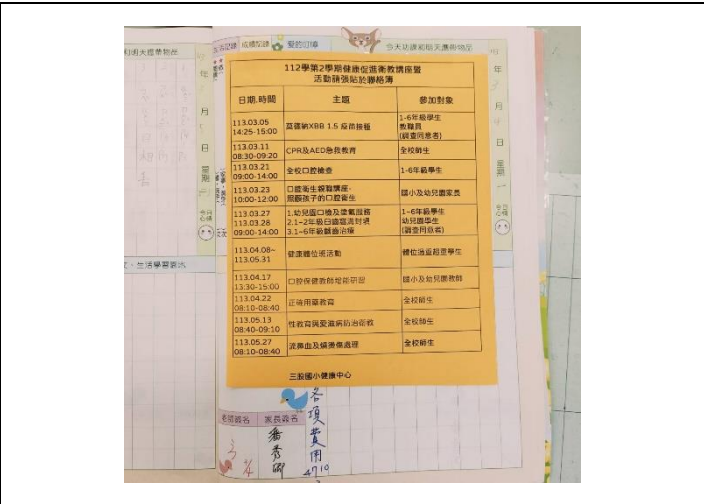 成績記錄
愛的叮嚀
今天功課和明天應帶物品
112學第2學期健康促進衛教講座暨
活動請張貼於聯絡簿
日期.時間 主題 參加對象
113.03.05
14:25-15:00
莫德納XBB 1.5 疫苗接種
1-6年級學生
教職員
(調查同意者)
113.03.11
08:30-09:20
CPR及AED急救教育
全校師生
113.03.21
09:00-14:00
全校口腔檢查
1-6年級學生
113.03.23
10:00-12:00
口腔衛生親職講座-
照顧孩子的口腔衛生
國小及幼兒園家長
113.03.27
113.03.28
09:00-14:00
1.幼兒園口檢及塗氟服務
2.1~2年級臼齒窩溝封填
3.1~6年級齲齒治療
1~6年級學生
幼兒園學生
(調查同意者)
113.04.08~
113.05.31
健康體位班活動
體位過重超重學生
113.04.17
13:30-15:00
口腔保健教師增能研習
國小及幼兒園教師
113.04.22
08:10-08:40
正確用藥教育
全校師生
113.05.13
08:40-09:10
性教育與愛滋病防治衛教
全校師生
113.05.27
08:10-08:40
流鼻血及燒燙傷處理
全校師生
三股國小健康中心
年
月
日
星期
老師簽名 家長簽名
潘秀卿
各項費用
4710
生活學習要求